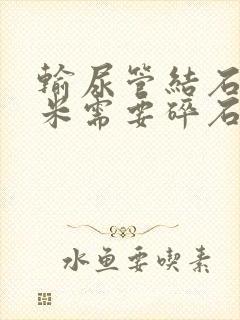 輸尿管結石
米需要碎石
水魚要喫素